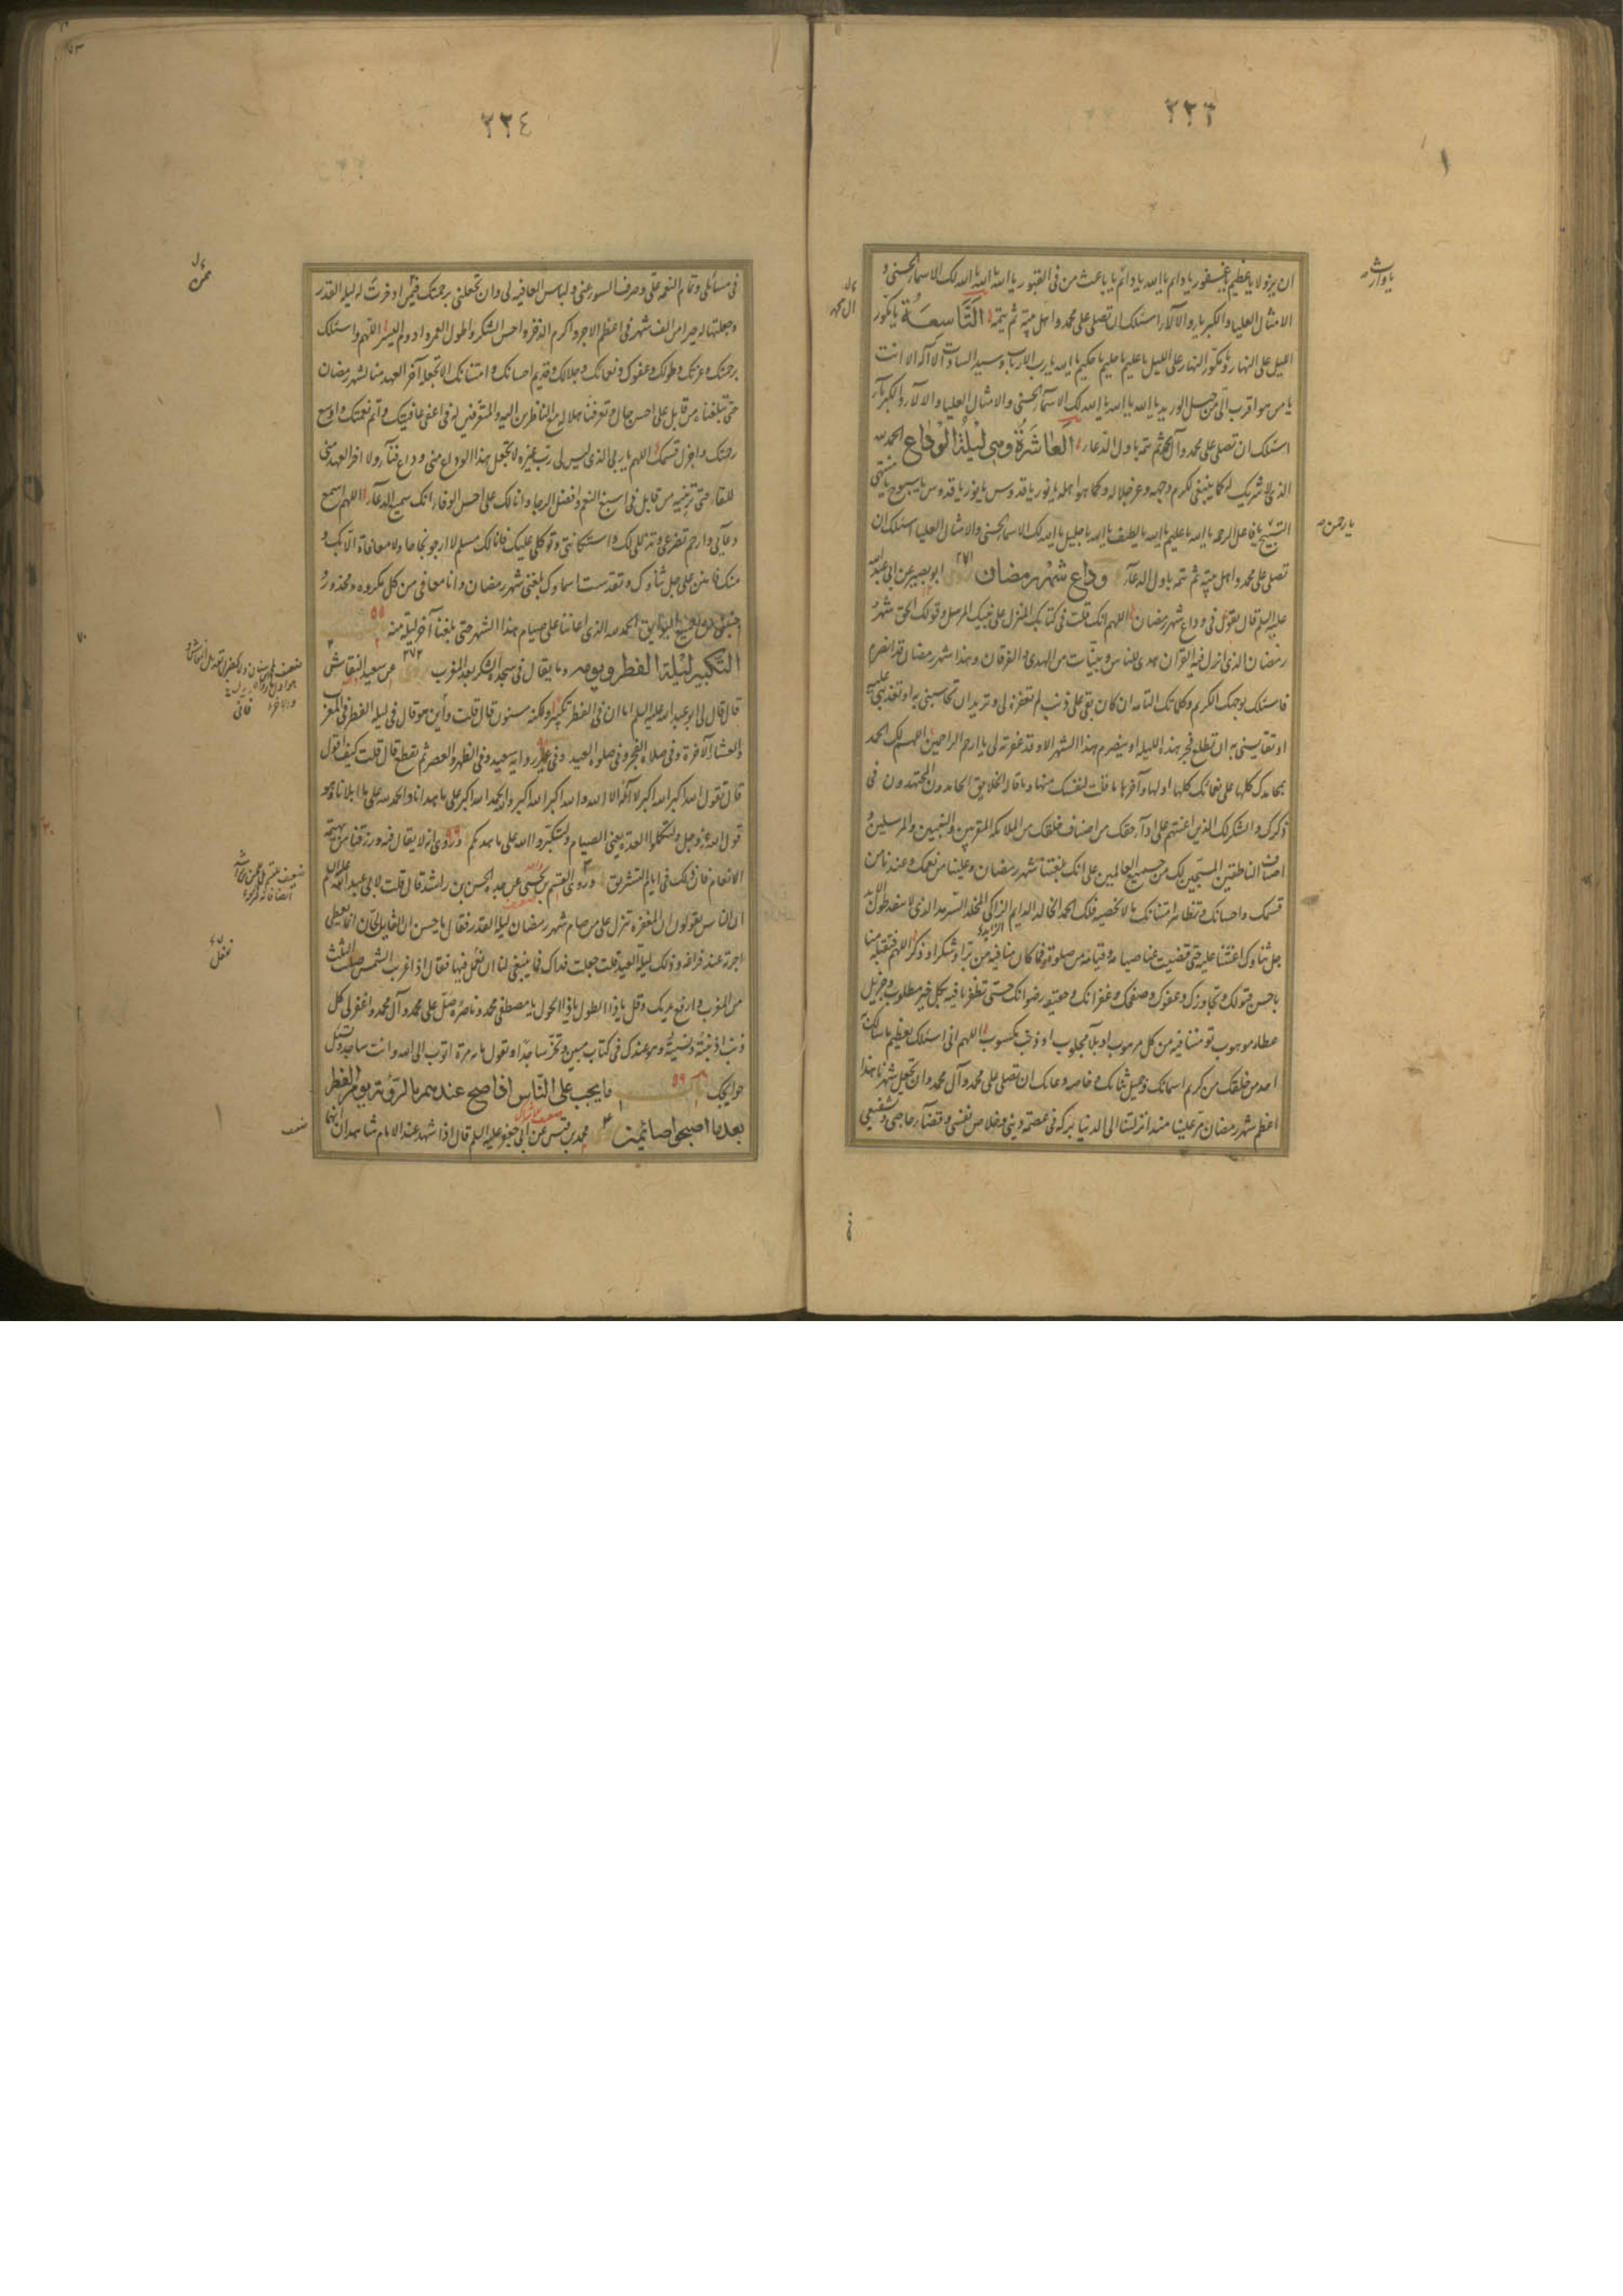 ٢٢٣
ان تزولا يا عظيم يا غفور يا دائم يا الله يا دائم يا باعث من فى القبور يا الله يا الله يا الله لك الاسماء الحسنى و
الامثال العليا والكبرياء والآلاء اسئلك ان تصلى على محمد واهل بيته ثم يتمه التاسعة يا مكور
الليل على النهار ومكور النهار على الليل يا عليم يا حليم يا حكيم يا الله يا رب الارباب وسيد السادات لا اله الا انت
يا من هو اقرب الى من حبل الوريد يا الله يا الله يا الله لك الاسماء الحسنى والامثال العليا والآلاء والكبرياء
اسئلك ان تصلى على محمد وآل محمد ثم تتمه باول الدعاء العاشرة وهى ليلة الوداع الحمد لله
الذى لا شريك له كما ينبغى لكرم وجهه وعز جلاله وكما هو اهله يا نور يا قدوس يا نور يا قدوس يا سبوح يا منتهى
التسبيح يا فاعل الرحمة يا الله يا عليم يا الله يا لطيف يا الله يا جليل يا الله لك الاسماء الحسنى والامثال العليا اسئلك ان
تصلى على محمد واهل بيته ثم تتمه باول الدعاء وداع شهر رمضان ٢٧١ ابو بصير عن ابى عبد الله
عليه السلم قال يقول فى وداع شهر رمضان اللهم انك قلت فى كتابك المنزل على نبيك المرسل وقولك الحق شهر
رمضان الذى انزل فيه القرآن هدى للناس وبينات من الهدى والفرقان وهذا شهر رمضان قد انصرم
فاسئلك بوجهك الكريم وكلماتك التامة ان كان بقى على ذنب لم تغفره لى وتريد ان تحاسبنى به او تعذبنى عليه
او تقايسنى به ان تطلع فجر هذه الليلة او ينصرم هذا الشهر الا وقد غفرته لى يا ارحم الراحمين اللهم لك الحمد
بمحامدك كلها على نعمائك كلها اولها وآخرها ما قلت لنفسك منها وما قاله الخلايق الحامدون المجتهدون فى
ذكرك والشكر لك الذين اعنتهم على اداء حقك من اصناف خلقك من الملائكة المقربين والنبيين والمرسلين و
اصناف الناطقين المسبحين لك من جميع العالمين على انك بلغتنا شهر رمضان وعلينا من نعمك وعندنا من
قسمك واحسانك وتظاهر امتنانك ما لا نحصيه فلك الحمد الخالد الدايم الزاكى المخلد السرمد الذى لا ينفد طول الابد
جل ثناؤك اعنتنا عليه حتى قضيت عنا صيامه وقيامه من صلوة وما كان منا فيه من بر او شكر او ذكر اللهم فتقبله منا
باحسن قبولك وتجاوزك وعفوك وصفحك وغفرانك وحقيقة رضوانك حتى تظفرنا فيه بكل خير مطلوب وجزيل
عطاء موهوب تؤمننا فيه من كل مرهوب او بلاء مجلوب او ذنب مكسوب اللهم انى اسئلك بعظيم ما سالك به
احد من خلقك من كريم اسمائك وجميل ثنائك وخاصة دعائك ان تصلى على محمد وآل محمد وان تجعل شهرنا هذا
اعظم شهر رمضان مر علينا منذ انزلتنا الى الدنيا بركة فى عصمة دينى وخلاص نفسى وقضاء حاجتى وتشفيعى
يا وارث
يا رحمن
٢٢٤
فى مسائلى وتمام النعمة على وصرف السوء عنى ولباس العافية لى وان تجعلنى برحمتك فيمن ادخرت له ليلة القدر
وجعلتها له خيرا من الف شهر فى اعظم الاجر واكرم الذخر واحسن الشكر واطول العمر وادوم اليسر اللهم واسئلك
برحمتك وعزتك وطولك وعفوك ونعمائك وجلالك وقديم احسانك وامتنانك الا تجعله آخر العهد منا لشهر رمضان
حتى تبلغناه من قابل على احسن حال وتعرفنا هلاله مع الناظرين اليه والمتعرفين له فى اعفى عافيتك واتم نعمتك واوسع
رحمتك واجزل قسمك اللهم يا ربى الذى ليس لى رب غيره لا تجعل هذا الوداع منى وداع فناء ولا آخر العهد منى
للقاء حتى ترينيه من قابل فى اسبغ النعم وافضل الرجاء وانا لك على احسن الوفاء انك سميع الدعاء اللهم اسمع
دعائى وارحم تضرعى وتذللى لك واستكانتى وتوكلى عليك فانا لك مسلم لا ارجو نجاحا ولا معافاة الا بك و
منك فامنن على جل ثناؤك وتقدست اسماؤك بلغنى شهر رمضان وانا معافى من كل مكروه ومحذور و
جنبنى من جميع البوايق الحمد لله الذى اعاننا على صيام هذا الشهر حتى بلغنا آخر ليلة منه ٥٥
التكبير ليلة الفطر ويومه وما يقال فى سجدة الشكر بعد المغرب ٢٧٢ عن سعيد النقاش
قال قال لى ابو عبد الله عليه السلم اما ان فى الفطر تكبيرا ولكنه مسنون قال قلت واين هو قال فى ليلة الفطر فى المغرب
والعشاء الآخرة وفى صلاة الفجر وفى صلوة العيد وفى غير رواية سعيد وفى الظهر والعصر ثم يقطع قال قلت كيف اقول
قال تقول الله اكبر الله اكبر لا اله الا الله والله اكبر الله اكبر ولله الحمد الله اكبر على ما هدانا والحمد لله على ما ابلانا وهو
قول الله عز وجل ولتكملوا العدة يعنى الصيام ولتكبروا الله على ما هديكم وروى انه لا يقال فيه ورزقنا من بهيمة
الانعام فان ذلك فى ايام التشريق وروى القسم بن يحيى عن جده الحسن بن راشد قال قلت لابى عبد الله عليه السلم
ان الناس يقولون ان المغفرة تنزل على من صام شهر رمضان ليلة القدر فقال يا حسن ان القاريجان انما يعطى
اجرته عند فراغه وذلك ليلة العيد قلت جعلت فداك فما ينبغى لنا ان نعمل فيها فقال اذا غربت الشمس صليت الثلث
من المغرب وارفع يديك وقل يا ذا الطول يا ذا الحول يا مصطفى محمد وناصره صل على محمد وآل محمد واغفر لى كل
ذنب اذنبته ونسيته وهو عندك فى كتاب مبين وتخر ساجدا وتقول مائة مرة اتوب الى الله وانت ساجد وتسئل
حوايجك ٥٦ ما يجب على الناس اذا صح عندهم بالرؤية يوم الفطر
بعد ما اصبحوا صائمين محمد بن قيس عن ابى جعفر عليه السلم قال اذا شهد عند الامام شاهدان انهما
ممن
٧٠
نفعل